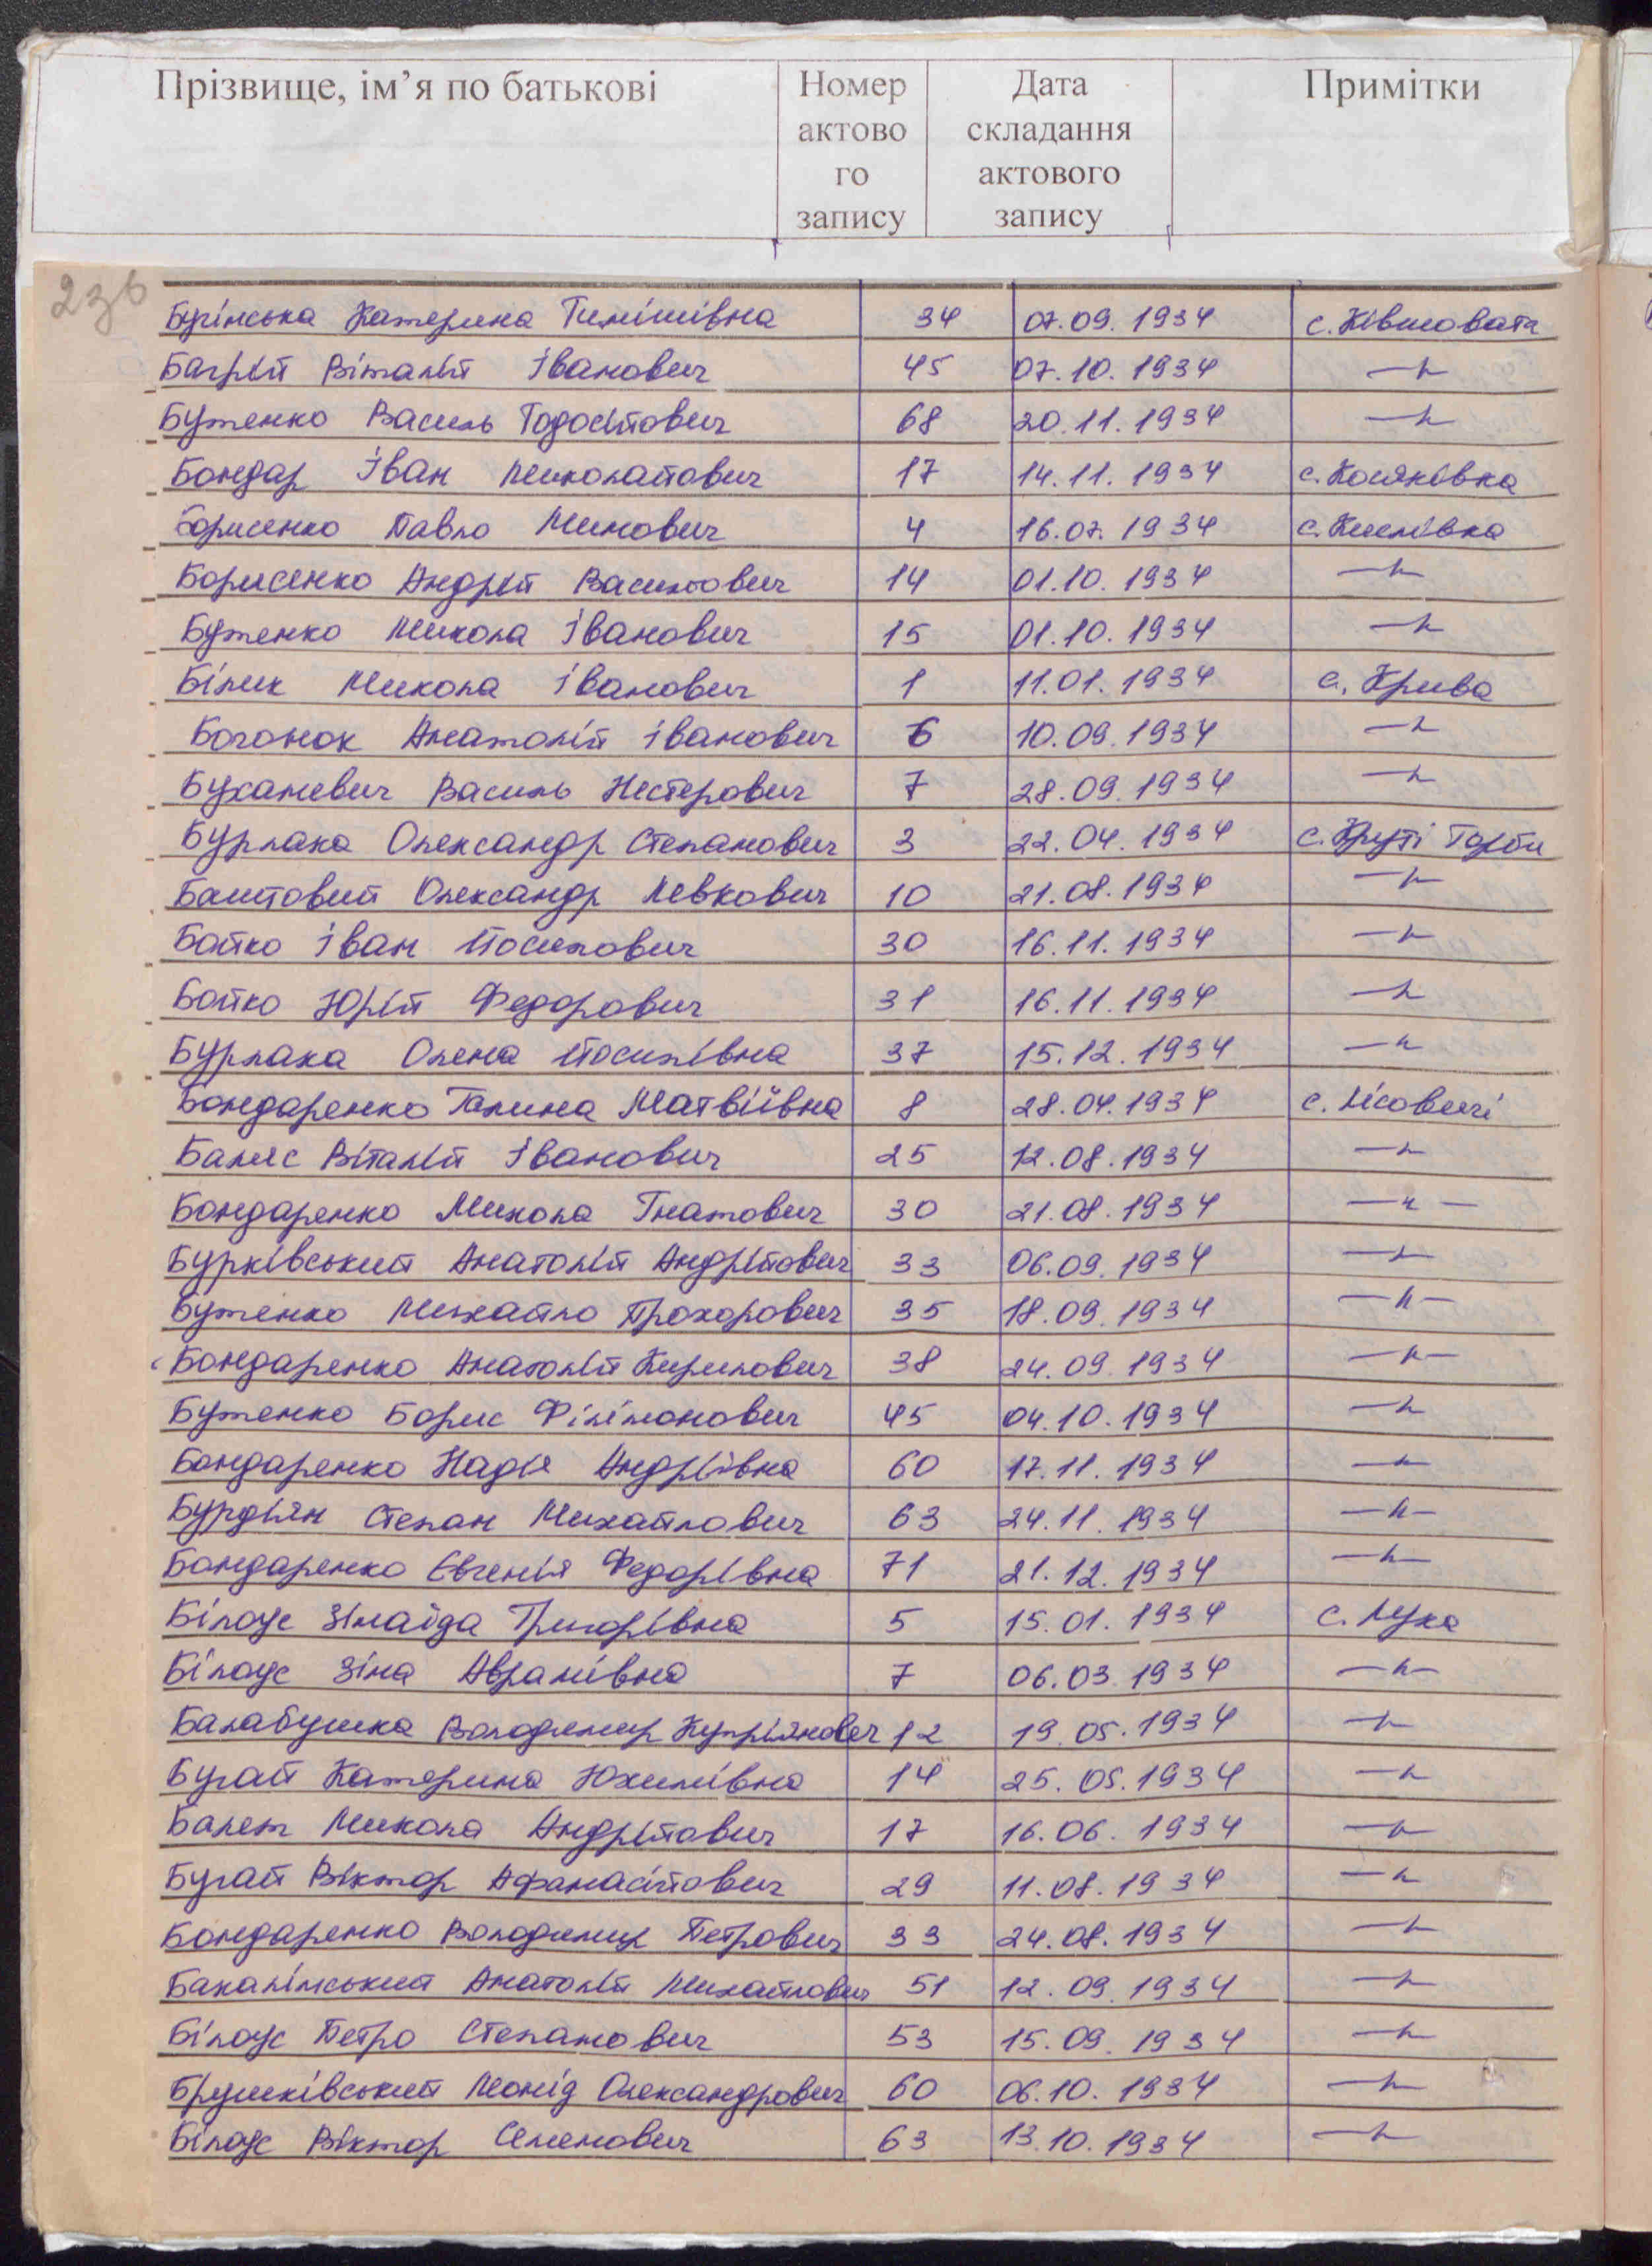 Прізвище, ім’я по батькові Номер актово го запису Дата складання актового запису Примітки
23в
Бурінська Катерина Тимішівна 34 07.09.1934 с. Ківшовата
Багрій Віталій Іванович 45 07.10.1934 —"—
Буженко Василь Тодосійович 68 20.11.1934 —"—
Бондар Іван Миколайович 17 14.11.1934 с. Косяківка
Борисенко Павло Минович 4 16.07.1934 с. Кислівка
Борисенко Андрій Васильович 14 01.10.1934 —"—
Буженко Микола Іванович 15 01.10.1934 —"—
Білик Микола Іванович 1 11.01.1934 с. Крива
Богонок Анатолій Іванович 6 10.09.1934 —"—
Буханевич Василь Нестерович 7 28.09.1934 —"—
Бурлака Олександр Степанович 3 22.04.1934 с. Круті Горби
Баштовий Олександр Левкович 10 21.08.1934 —"—
Бойко Іван Йосипович 30 16.11.1934 —"—
Бойко Юрій Федорович 31 16.11.1934 —"—
Бурлака Олена Йосипівна 37 15.12.1934 —"—
Бондаренко Галина Матвіївна 8 28.04.1934 с. Лісовичі
Баляс Віталій Іванович 25 12.08.1934 —"—
Бондаренко Микола Гнатович 30 21.08.1934 —"—
Бурківський Анатолій Андрійович 33 06.09.1934 —"—
Буженко Михайло Прохорович 35 18.09.1934 —"—
Бондаренко Анатолій Кирилович 38 24.09.1934 —"—
Буженко Борис Філімонович 45 04.10.1934 —"—
Бондаренко Надія Андріївна 60 17.11.1934 —"—
Бурдіян Степан Михайлович 63 24.11.1934 —"—
Бондаренко Євгенія Федорівна 71 21.12.1934 —"—
Білоус Зінаїда Григорівна 5 15.01.1934 с. Лука
Білоус Зіна Аврамівна 7 06.03.1934 —"—
Балабушка Володимир Купріянович 12 19.05.1934 —"—
Бугай Катерина Юхимівна 14 25.05.1934 —"—
Балет Микола Андрійович 17 16.06.1934 —"—
Бугай Віктор Афанасійович 29 11.08.1934 —"—
Бондаренко Володимир Петрович 33 24.08.1934 —"—
Бакалінський Анатолій Михайлович 51 12.09.1934 —"—
Білоус Петро Степанович 53 15.09.1934 —"—
Брушківський Леонід Олександрович 60 06.10.1934 —"—
Білоус Віктор Семенович 63 13.10.1934 —"—